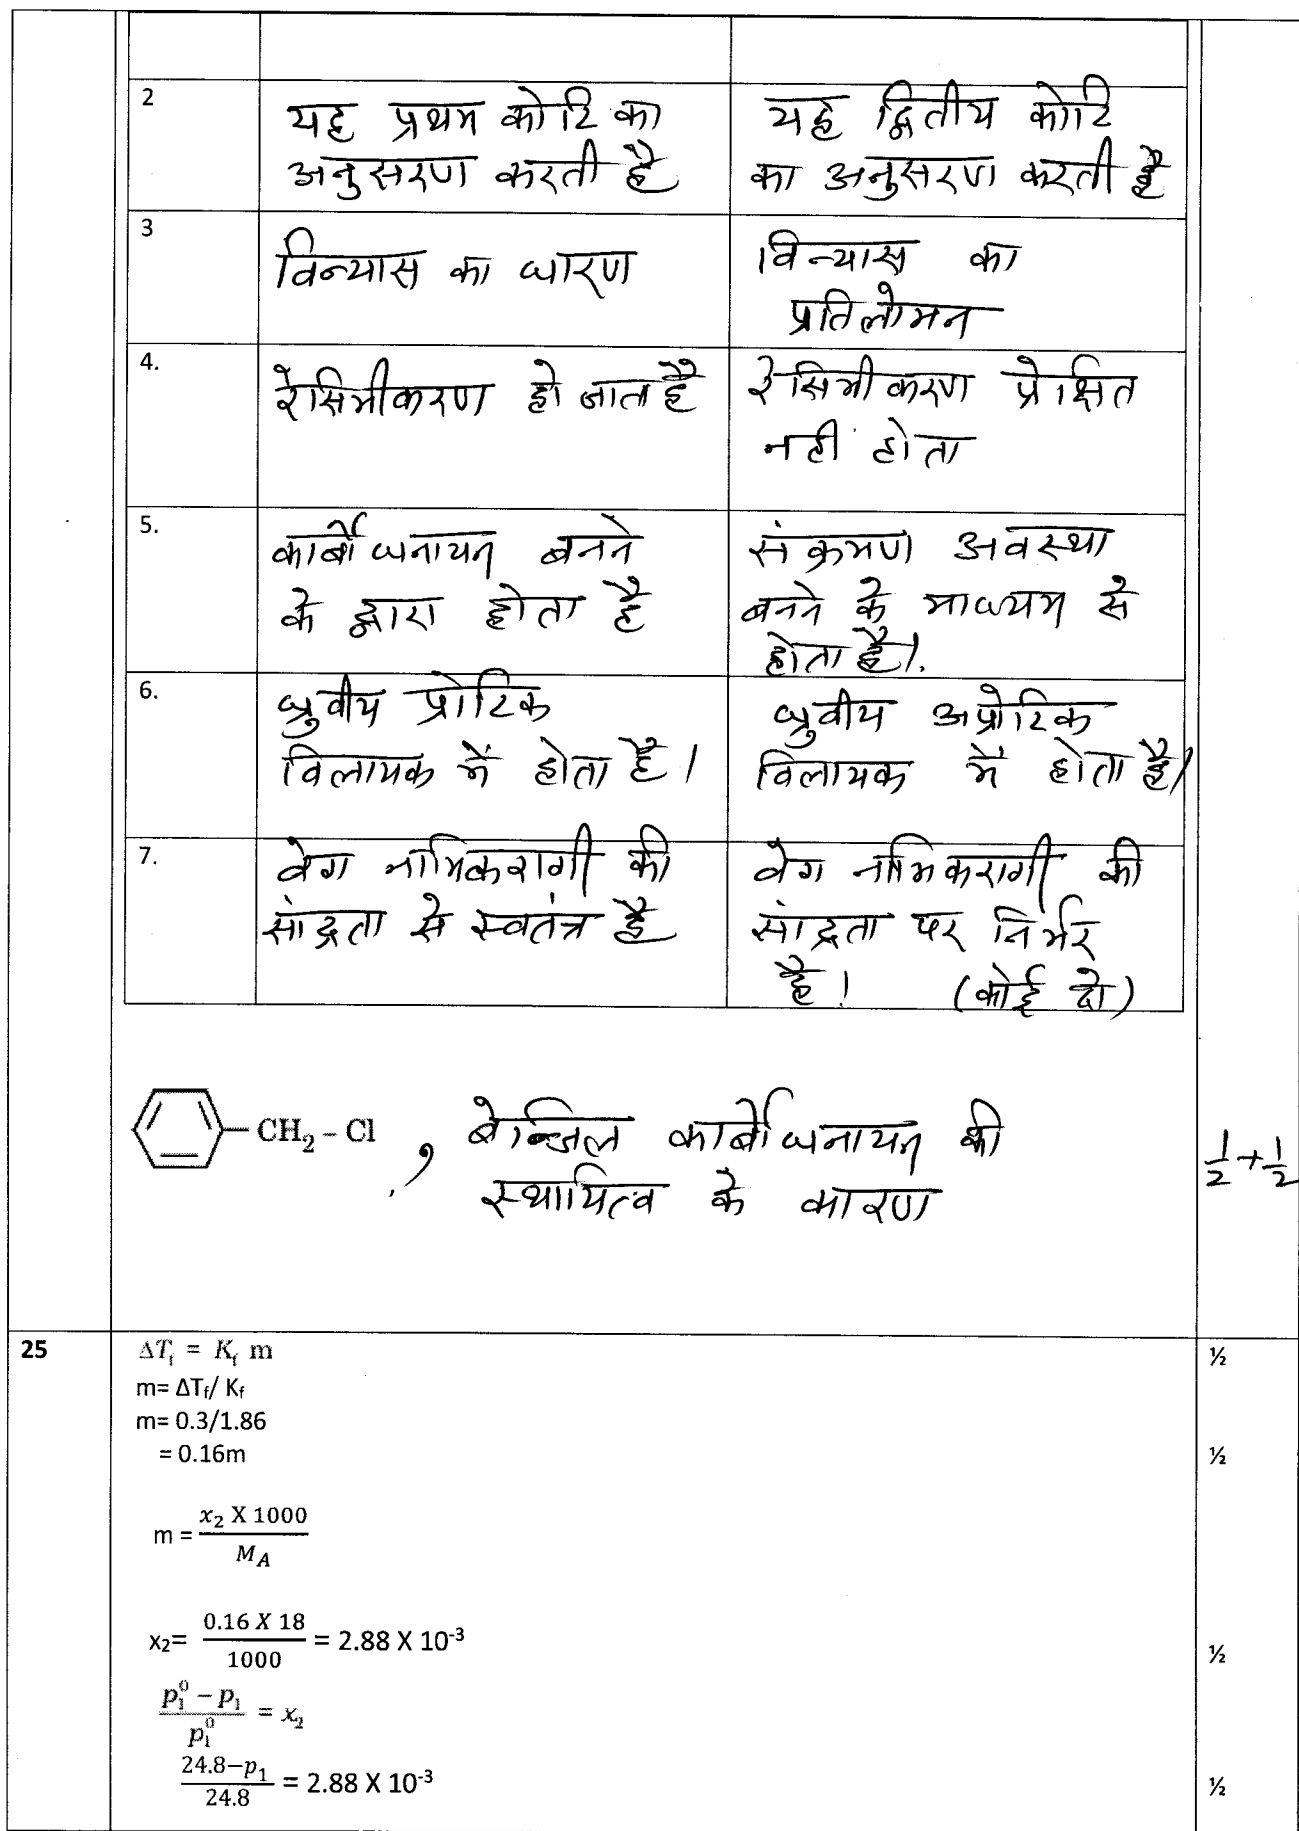 2
यह प्रथम कोटि का
अनुसरण करती है
यह द्वितीय कोटि
का अनुसरण करती है
3
विन्यास का धारण
विन्यास का
प्रतिलोमन
4.
रेसिमीकरण हो जाता है
रेसिमीकरण प्रेक्षित
नही होता
5.
कार्बोधनायन बनने
के द्वारा होता है
संक्रमण अवस्था
बनने के माध्यम से
होता है।
6.
ध्रुवीय प्रोटिक
विलायक में होता है।
ध्रुवीय अप्रोटिक
विलायक में होता है।
7.
वेग नाभिकरागी की
सांद्रता से स्वतंत्र है
वेग नाभिकरागी की
सांद्रता पर निर्भर
है। (कोई दो)
CH₂ – Cl , बेन्जिल कार्बोधनायन की
स्थायित्व के कारण
½ + ½
25
ΔT_f = K_f m ½
m= ΔT_f/ K_f
m= 0.3/1.86
= 0.16m ½
m = x₂ X 1000 / M_A
x₂= 0.16 X 18 / 1000 = 2.88 X 10⁻³ ½
p₁⁰ – p₁ / p₁⁰ = x₂
24.8−p₁ / 24.8 = 2.88 X 10⁻³ ½